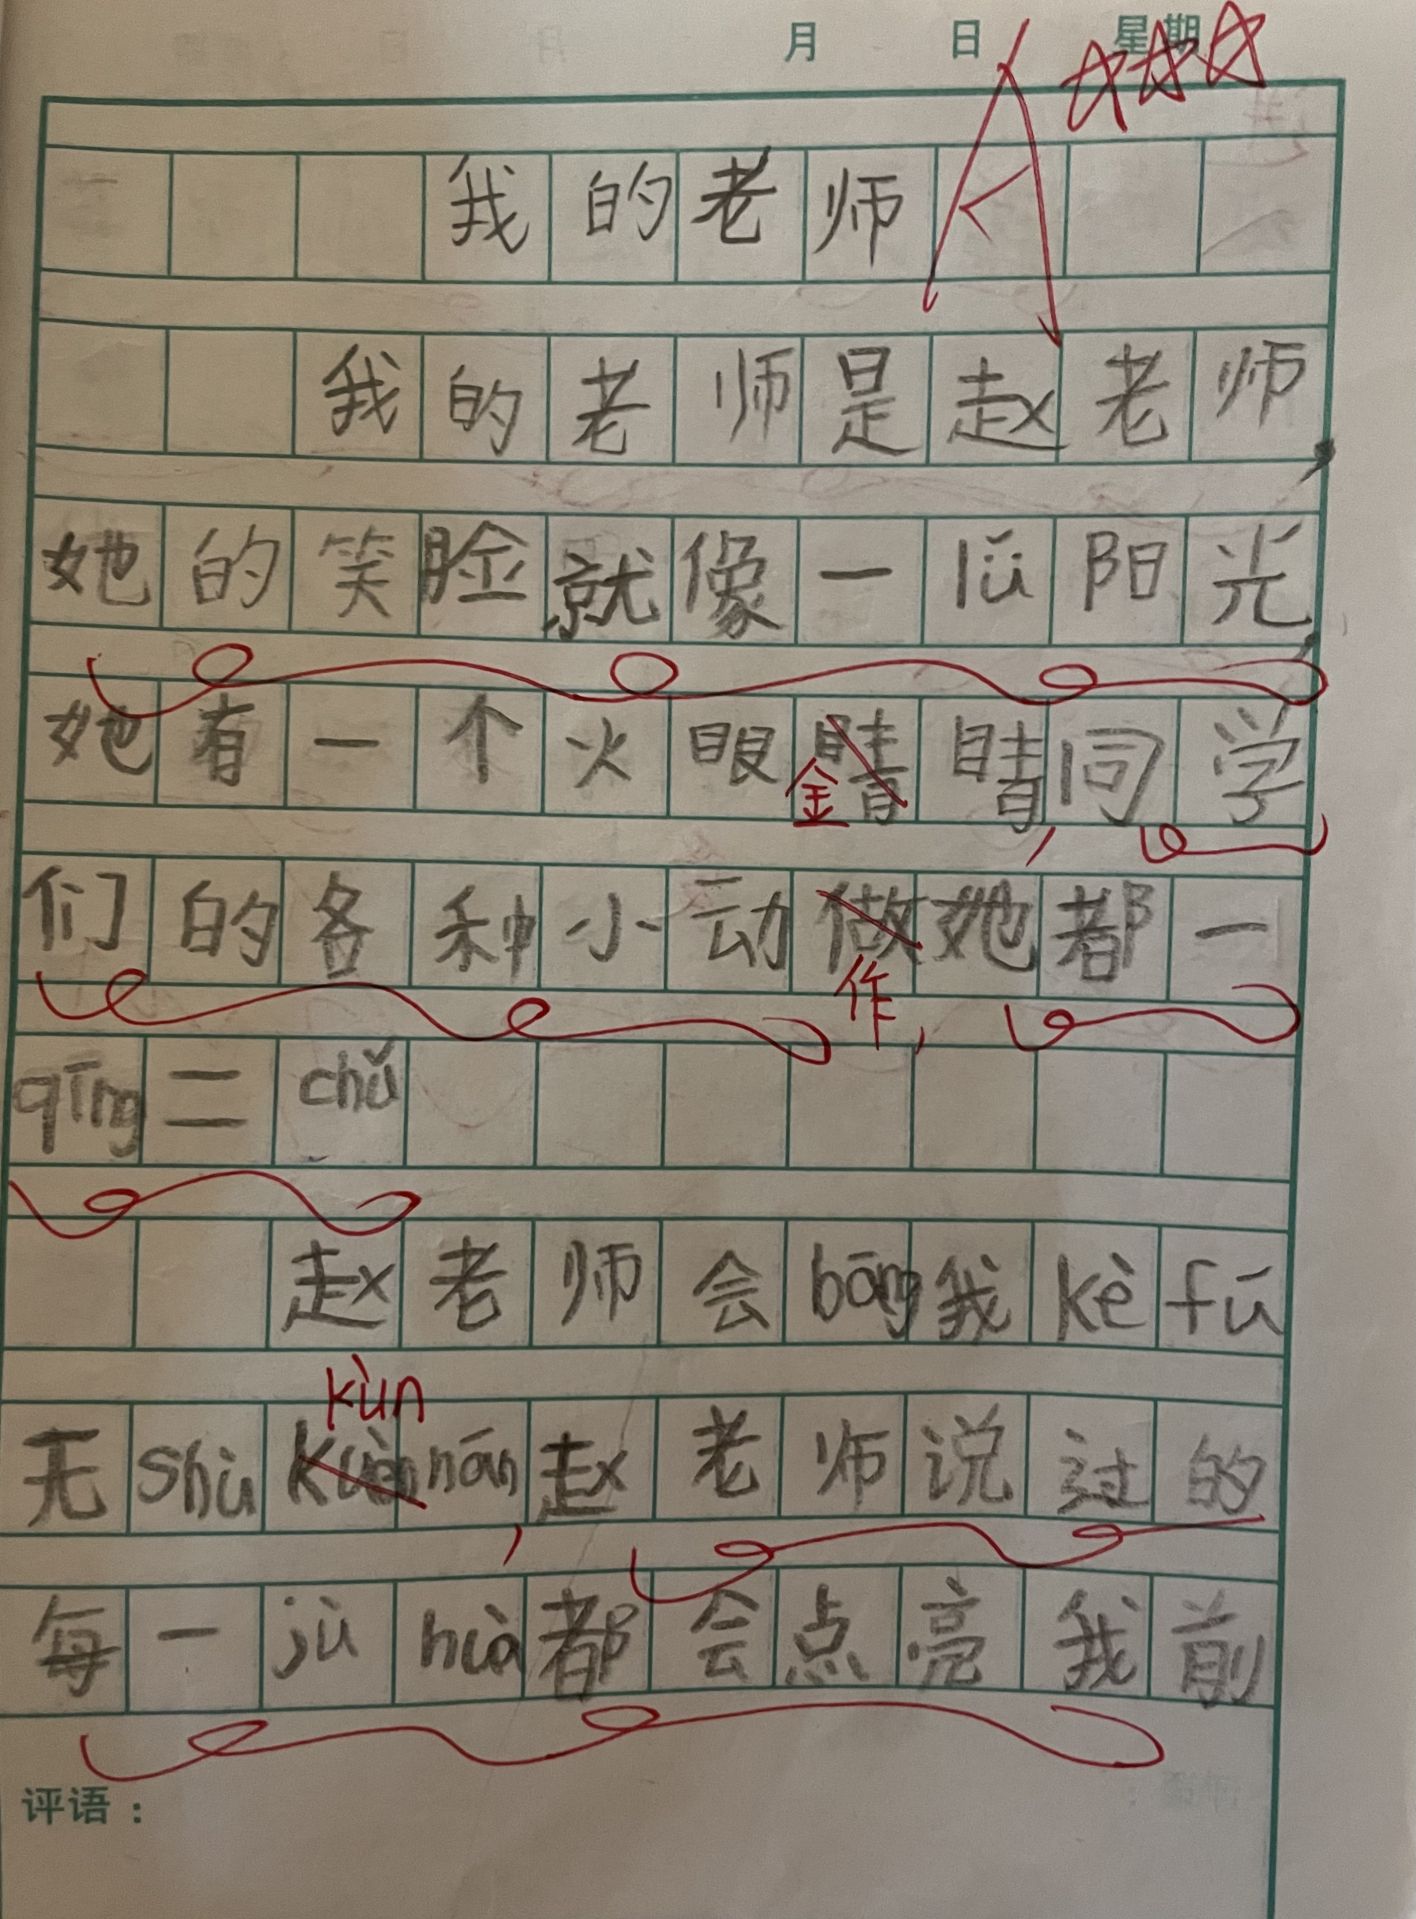 月 日 星期
A ☆☆☆
我的老师
我的老师是赵老师,
她的笑脸就像一lǚ阳光,
她有一个火眼睛睛,同学
金
们的各种小动做她都一
作,
qīng二chǔ
赵老师会bāng我kè fú
kùn
无shù kuèn nán,赵老师说过的
每一jù huà都会点亮我前
评语: